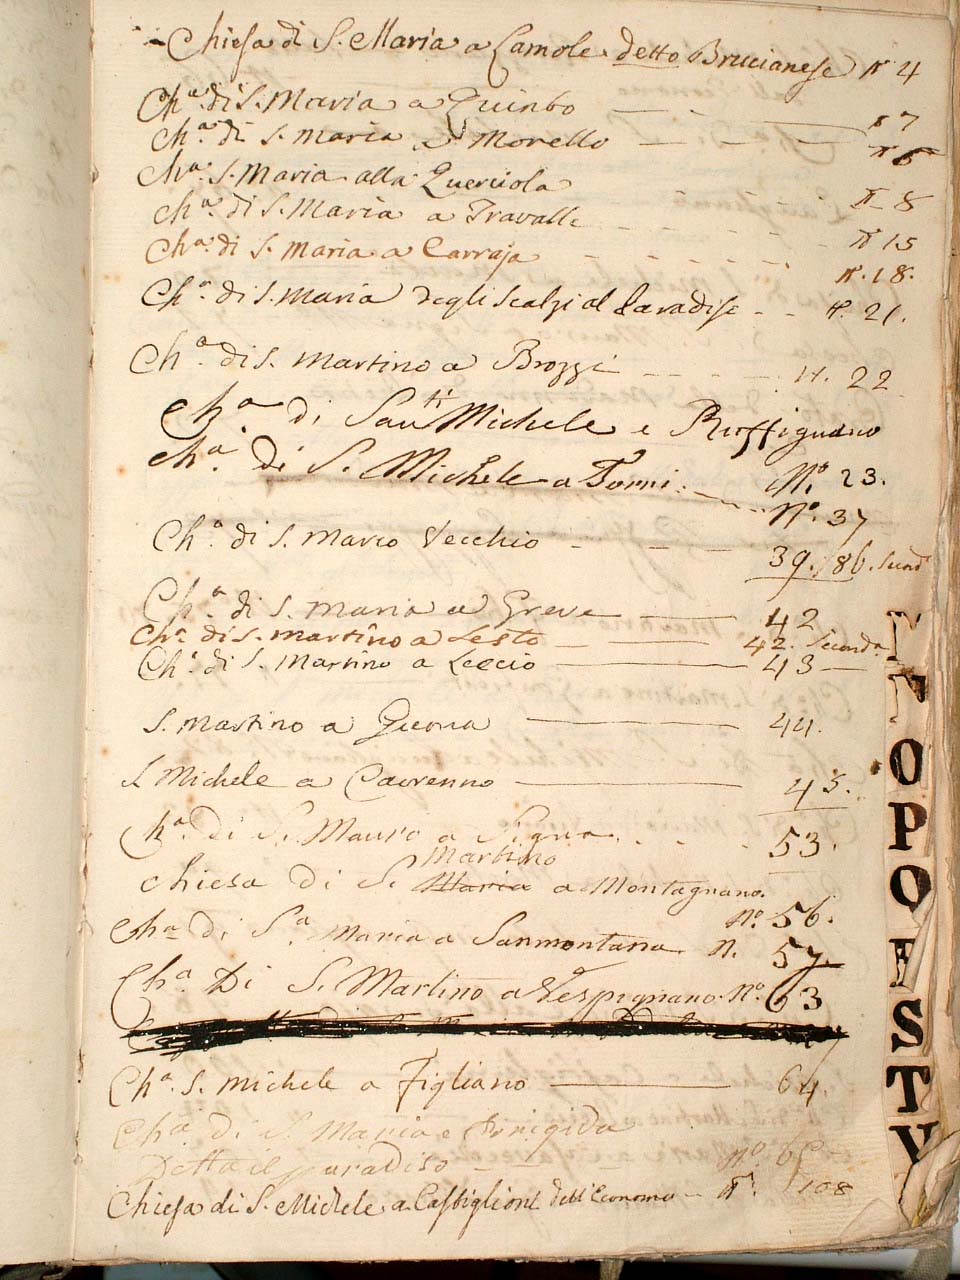 Chiesa di S. Maria a Lamole detto Bruscianese N 4
Ch.ª di S. Maria a Quinto N 7
Ch.ª di S. Maria a Morello N 6
Ch.ª S. Maria alla Querciola N 8
Ch.ª di S. Maria a Travalle N 15
Ch.ª di S. Maria a Carraja N. 18.
Ch.ª di S. Maria degli Scalzi al Paradiso N. 21.
Ch.ª di S. Martino a Brozzi N. 22
Ch.ª di San Michele a Ruffignano
N.º 23.
Ch.ª di S. Michele a
N.º 37
Ch.ª di S. Marco Vecchio 39. 86. Second
Ch.ª di S. Maria a Greve 42
Ch.ª di S. Martino a Sesto 42. Second.ª
Ch.ª di S. Martino a Leccio 43
S. Martino a 44.
S. Michele a 45.
Ch.ª di S. Mauro a Signa 53.
Martino
Chiesa di S. Maria a Montagnano.
N.º 56.
Ch.ª di S.ª Maria a Sanmontana N. 57
Ch.ª Di S. Martino a Vespignano N.º 63
Ch.ª S. Michele a Figliano 64.
Ch.ª di S. Maria e Brigida
Detta il paradiso N.º 65
Chiesa di S. Michele a Castiglioni dell'Economo N. 108
N
O
P
O
F
S
T
V